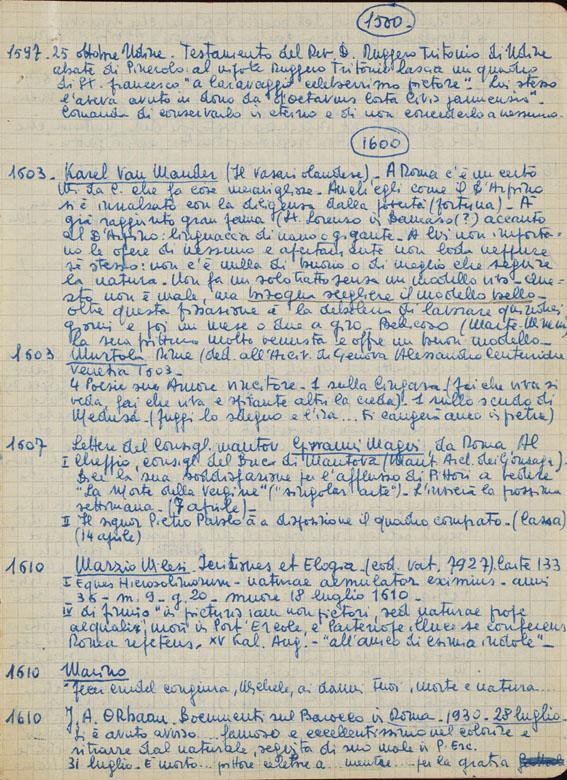 1500.
1597. 25 ottobre Udine. Testamento del Rev. D. Ruggero Tritonio di Udine
abate di Pinerolo: al nipote Ruggero Tritonio lascia un quadro
di St. Francesco "a Caravaggio celeberrimo pictore". Lui stesso
l'aveva avuto in dono da "Octavius Costa Civis Januensis".
Comanda di conservarlo in eterno e di non concederlo a nessuno.
1600
1603. Karel Van Mander (Il Vasari olandese). A Roma c'è un certo
M. da C. che fa cose meravigliose. Anch'egli come il D'Arpino
si è innalzato con la diligenza dalla povertà (fortuna). A
già raggiunto gran fama (St. Lorenzo in Damaso (?) accanto
al D'Arpino: linguaccia di nano e gigante. A lui non importa-
no le opere di nessuno e apertamente non loda neppure
se stesso: non c'è nulla di buono o di meglio che seguire
la natura. Non fa un solo tratto senza un modello vivo. Que-
sto non è male, ma bisogna scegliere il modello bello.
oltre questa è la di lavorare quindici
giorni e poi un mese o due a giro. Bellicoso (Marte-Minerva)
la sua pittura molto venusta e offre un buon modello.
1603 Murtola Rime (ded. all'Arciv. di Genova Alessandro Centurione
Venetia 1603.
4 Poesie su Amore vincitore. 1 sulla Cingara (fai che viva si
veda, fai che viva e spirante altri la creda). 1 sullo scudo di
Medusa. (fuggi lo sdegno e l'ira ... ti cangerà anco in pietra)
1607 Lettere del Consigl. mantov. Giovanni Magni, da Roma. Al
I Chieppio, consigl. del Duca di Mantova (Mant. Arch. dei Gonzaga).
Dice la sua soddisfazione per l'afflusso di Pittori a vedere
"La Morte della Vergine" ("singolar arte"). L'invierà la prossima
settimana. (7 aprile).
II Il signor Pietro Paolo à a disposizione il quadro comprato. (cassa)
(14 aprile)
1610 Marzio Milesi Inscriptiones et Elogia. (cod. vat. 7927). Carte 133
I Eques Hierosolimitanus - naturae aemulator eximius - anni
36 - m. 9 - g. 20 - muore 18 luglio 1610.
IV "in picturis iam non pictori, sed naturae prope
aequalis, morì in Port'Ercole, e Partenope illuc se conferens
Roma repetens, XV Kal. Aug. - "all'amico di esimia indole".
1610 Marino
"Fecer crudel congiura, Michele, ai danni tuoi, morte e natura....
1610 J. A. Orbaan. Documenti sul Barocco in Roma. 1930. 28 luglio.
Si è avuto avviso.... famoso e eccellentissimo nel colorire e
ritrarre dal naturale, seguita di suo male in P. Erc.
31 luglio. E morto... pittore celebre a... mentre.... per la gratia